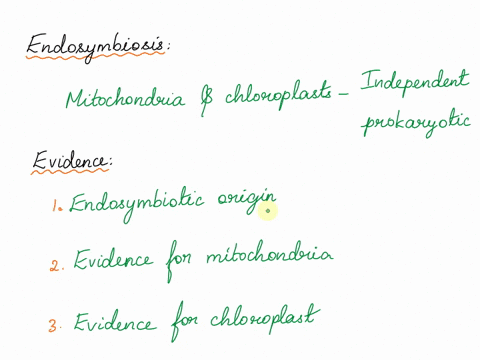 Endosymbiosis:
Mitochondria & chloroplasts - Independent
prokaryotic
Evidence:
1. Endosymbiotic origin
2. Evidence for mitochondria
3. Evidence for chloroplast